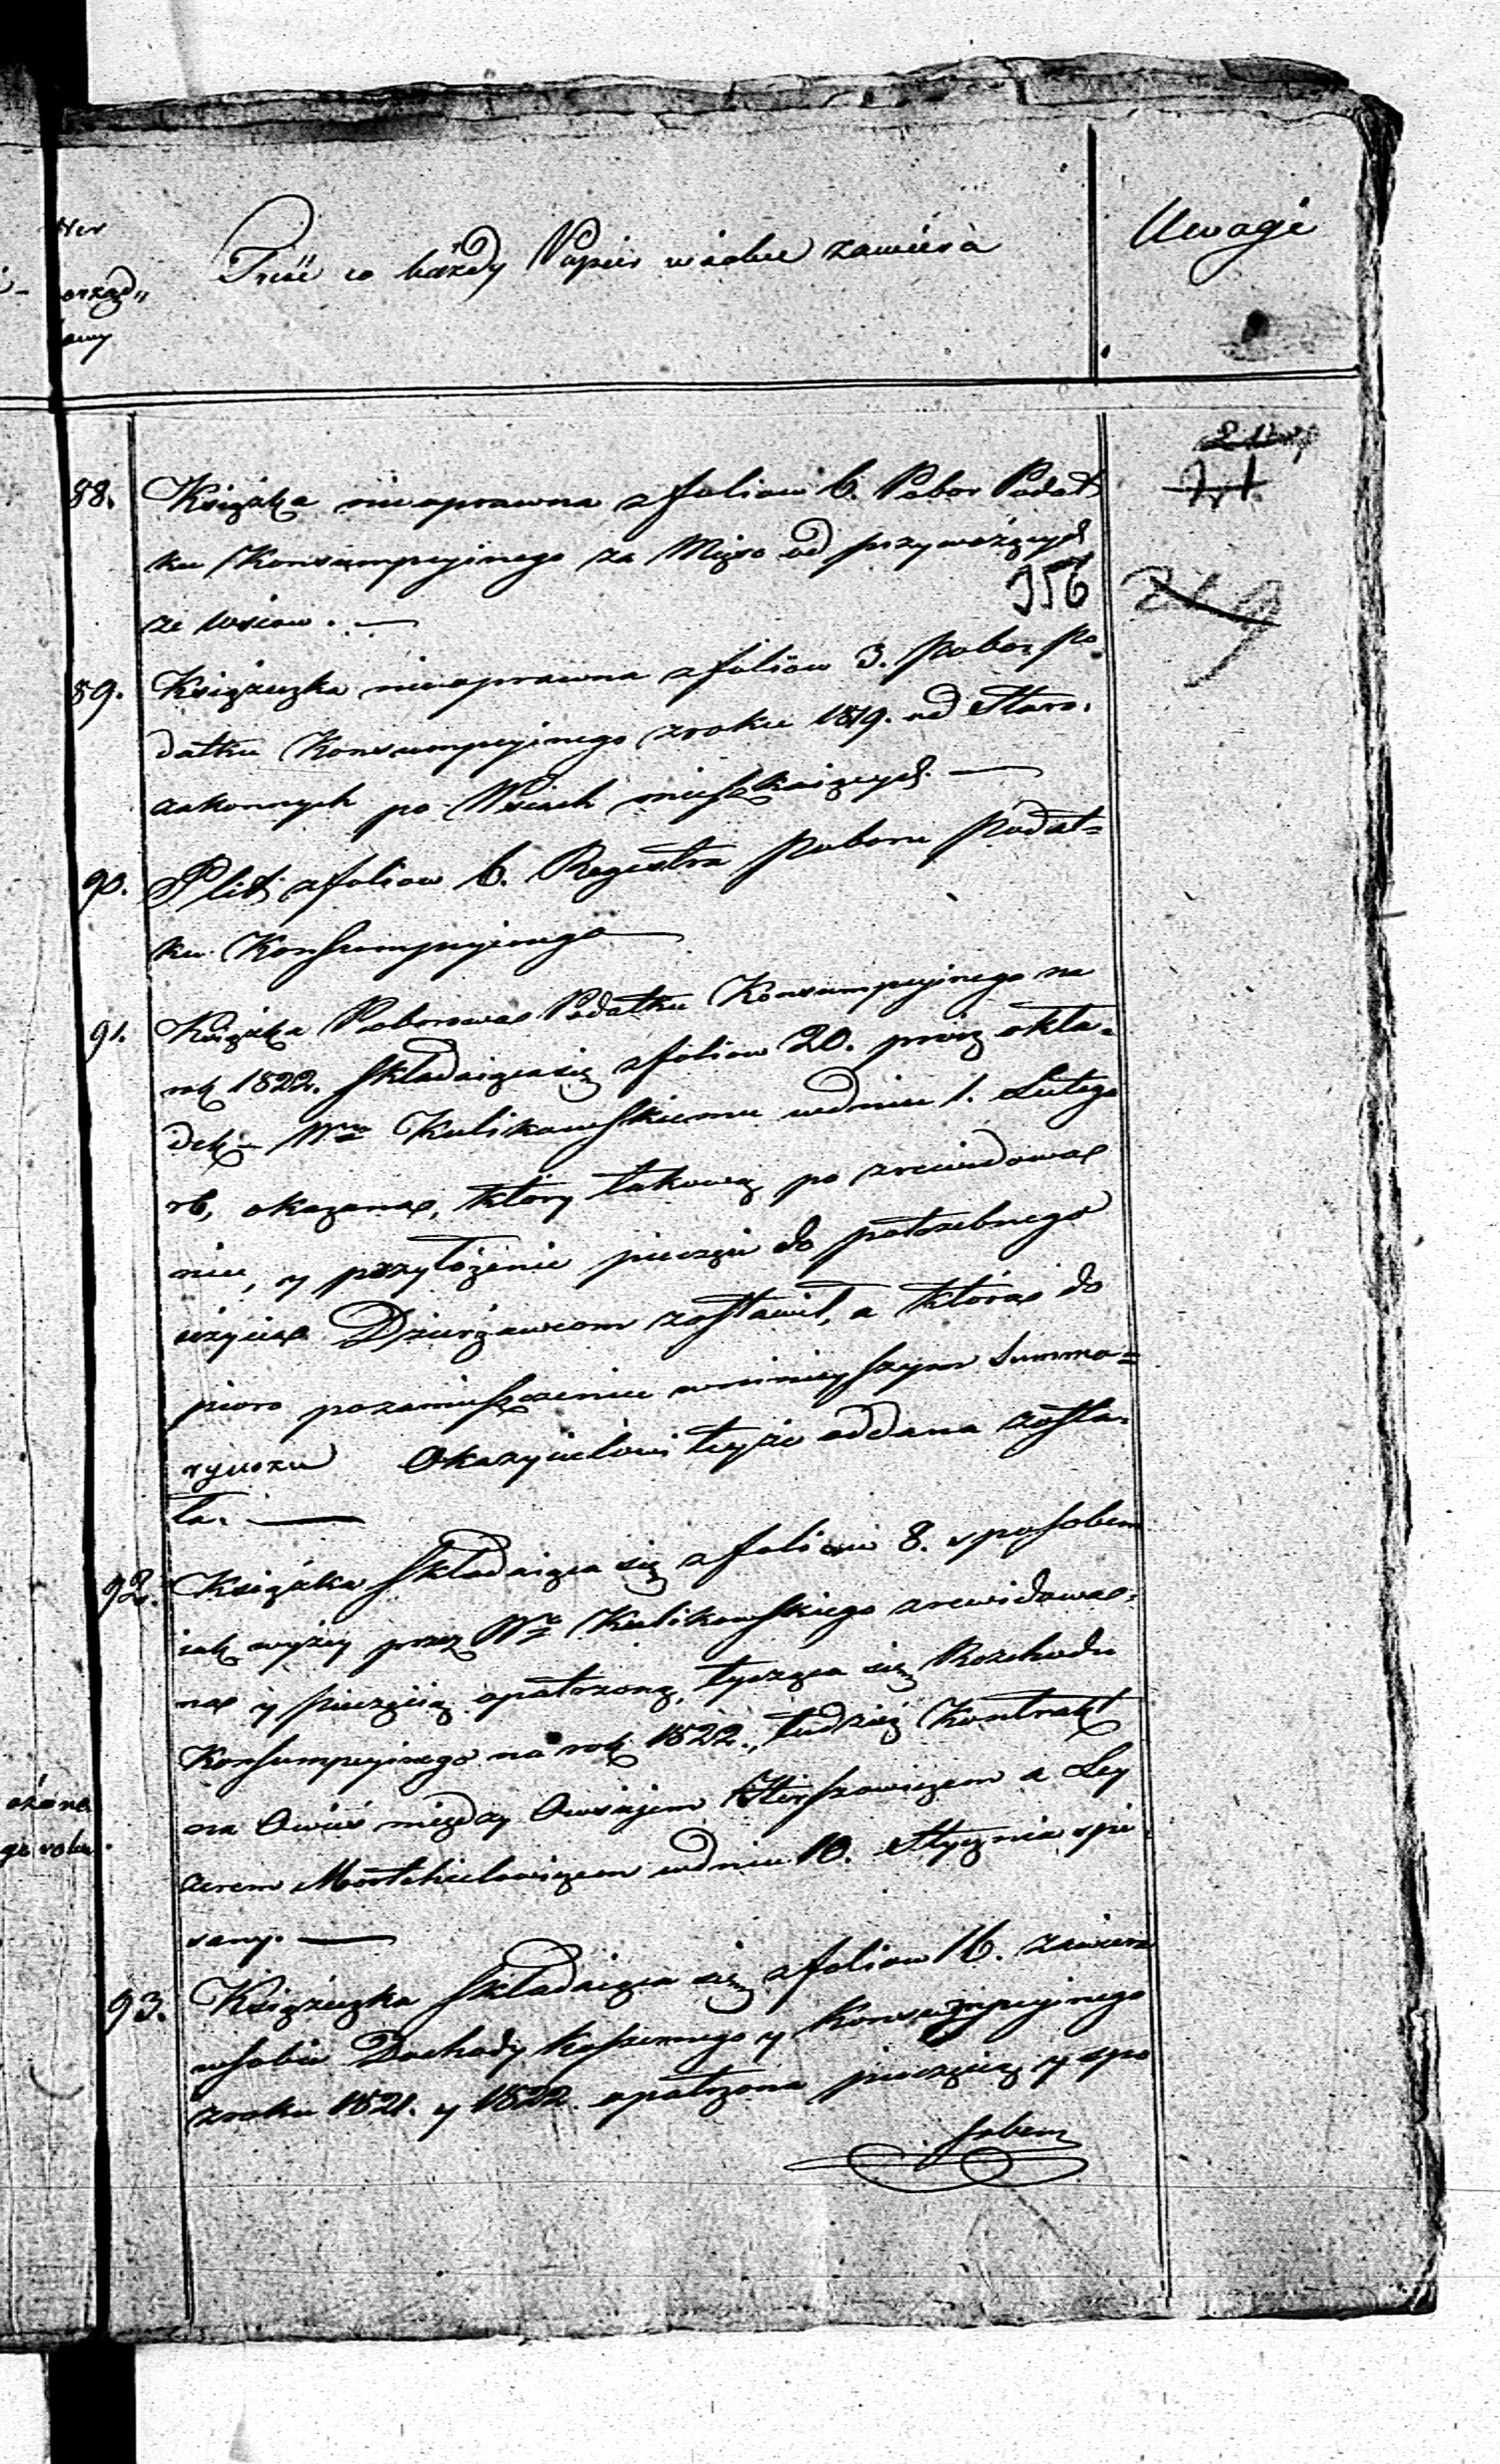 Ner
porząd„
kowy
Treść co każdy Papier w sobie zawiéra
Uwagi
88. Książka nieoprawna z foliow 6. Pobor Podat
ku Konsumpcyinego za Mięso od przywożących
ze wsiow. —
356
89. Książeczka nieoprawna z foliow 3. Pobor po
datku Konsumpcyinego z roku 1819. od Staro.
zakonnych po Wsiach mieszkaiących. —
90. Plik z foliow 6. Regestra Poboru Podat=
ku Konsumpcyinego —
91. Książka Poborowa Podatku Konsumpcyinego na
rok 1822. składaiąca się z foliow 20. prócz okła=
dek – Wmu Kulikowskiemu w dniu 1. Lutego
rb, okazana, który takową po zrewidowa
niu, y przyłożeniu pieczęci do potrzebnego
użycia Dzierżawcom zostawił, a która do
piero po zamieszczeniu w ninieyszym Summa=
ryuszu Okazycielowi teyże oddana zosta=
ła. —
92. Książka składaiąca się z foliow 8. sposobem
iak wyżey przez Wo Kulikowskiego zrewidowa=
na y pieczęcią opatrzona, tycząca się Rozchodu
Konsumpcyinego na rok 1822., tudzież Kontrakt
na Owies między Owsiejem Herszowiczem a Ley
zerem Mortchielowiczem w dniu 10. Stycznia spi
sany. —
93. Książeczka składaiąca się z foliow 16. zawiera
w sobie Dochody Koszernego y Konsumpcyinego
z roku 1821. y 1822. opatrzona pieczęcią y spo
sobem